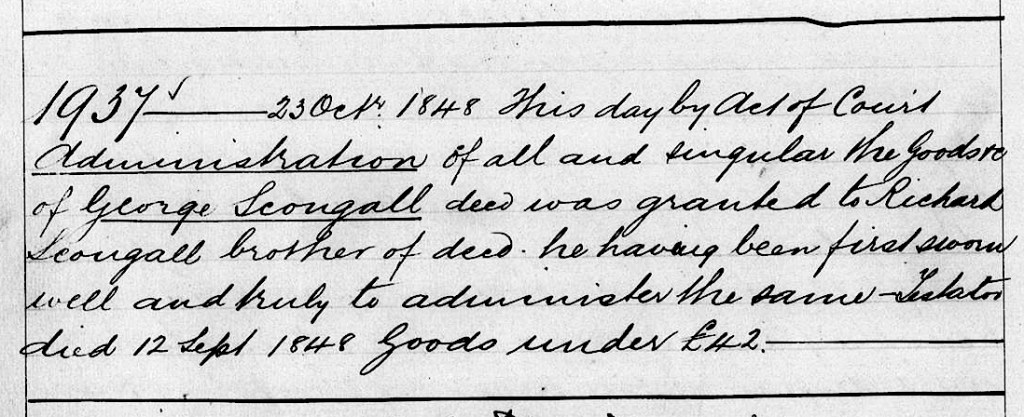 1937 23 Octr. 1848 This day by Act of Court
Administration of all and singular the Goods &c
of George Scougall decd was granted to Richard
Scougall brother of decd. he having been first sworn
well and truly to administer the same - Testator
died 12 Sept 1848 Goods under £42.